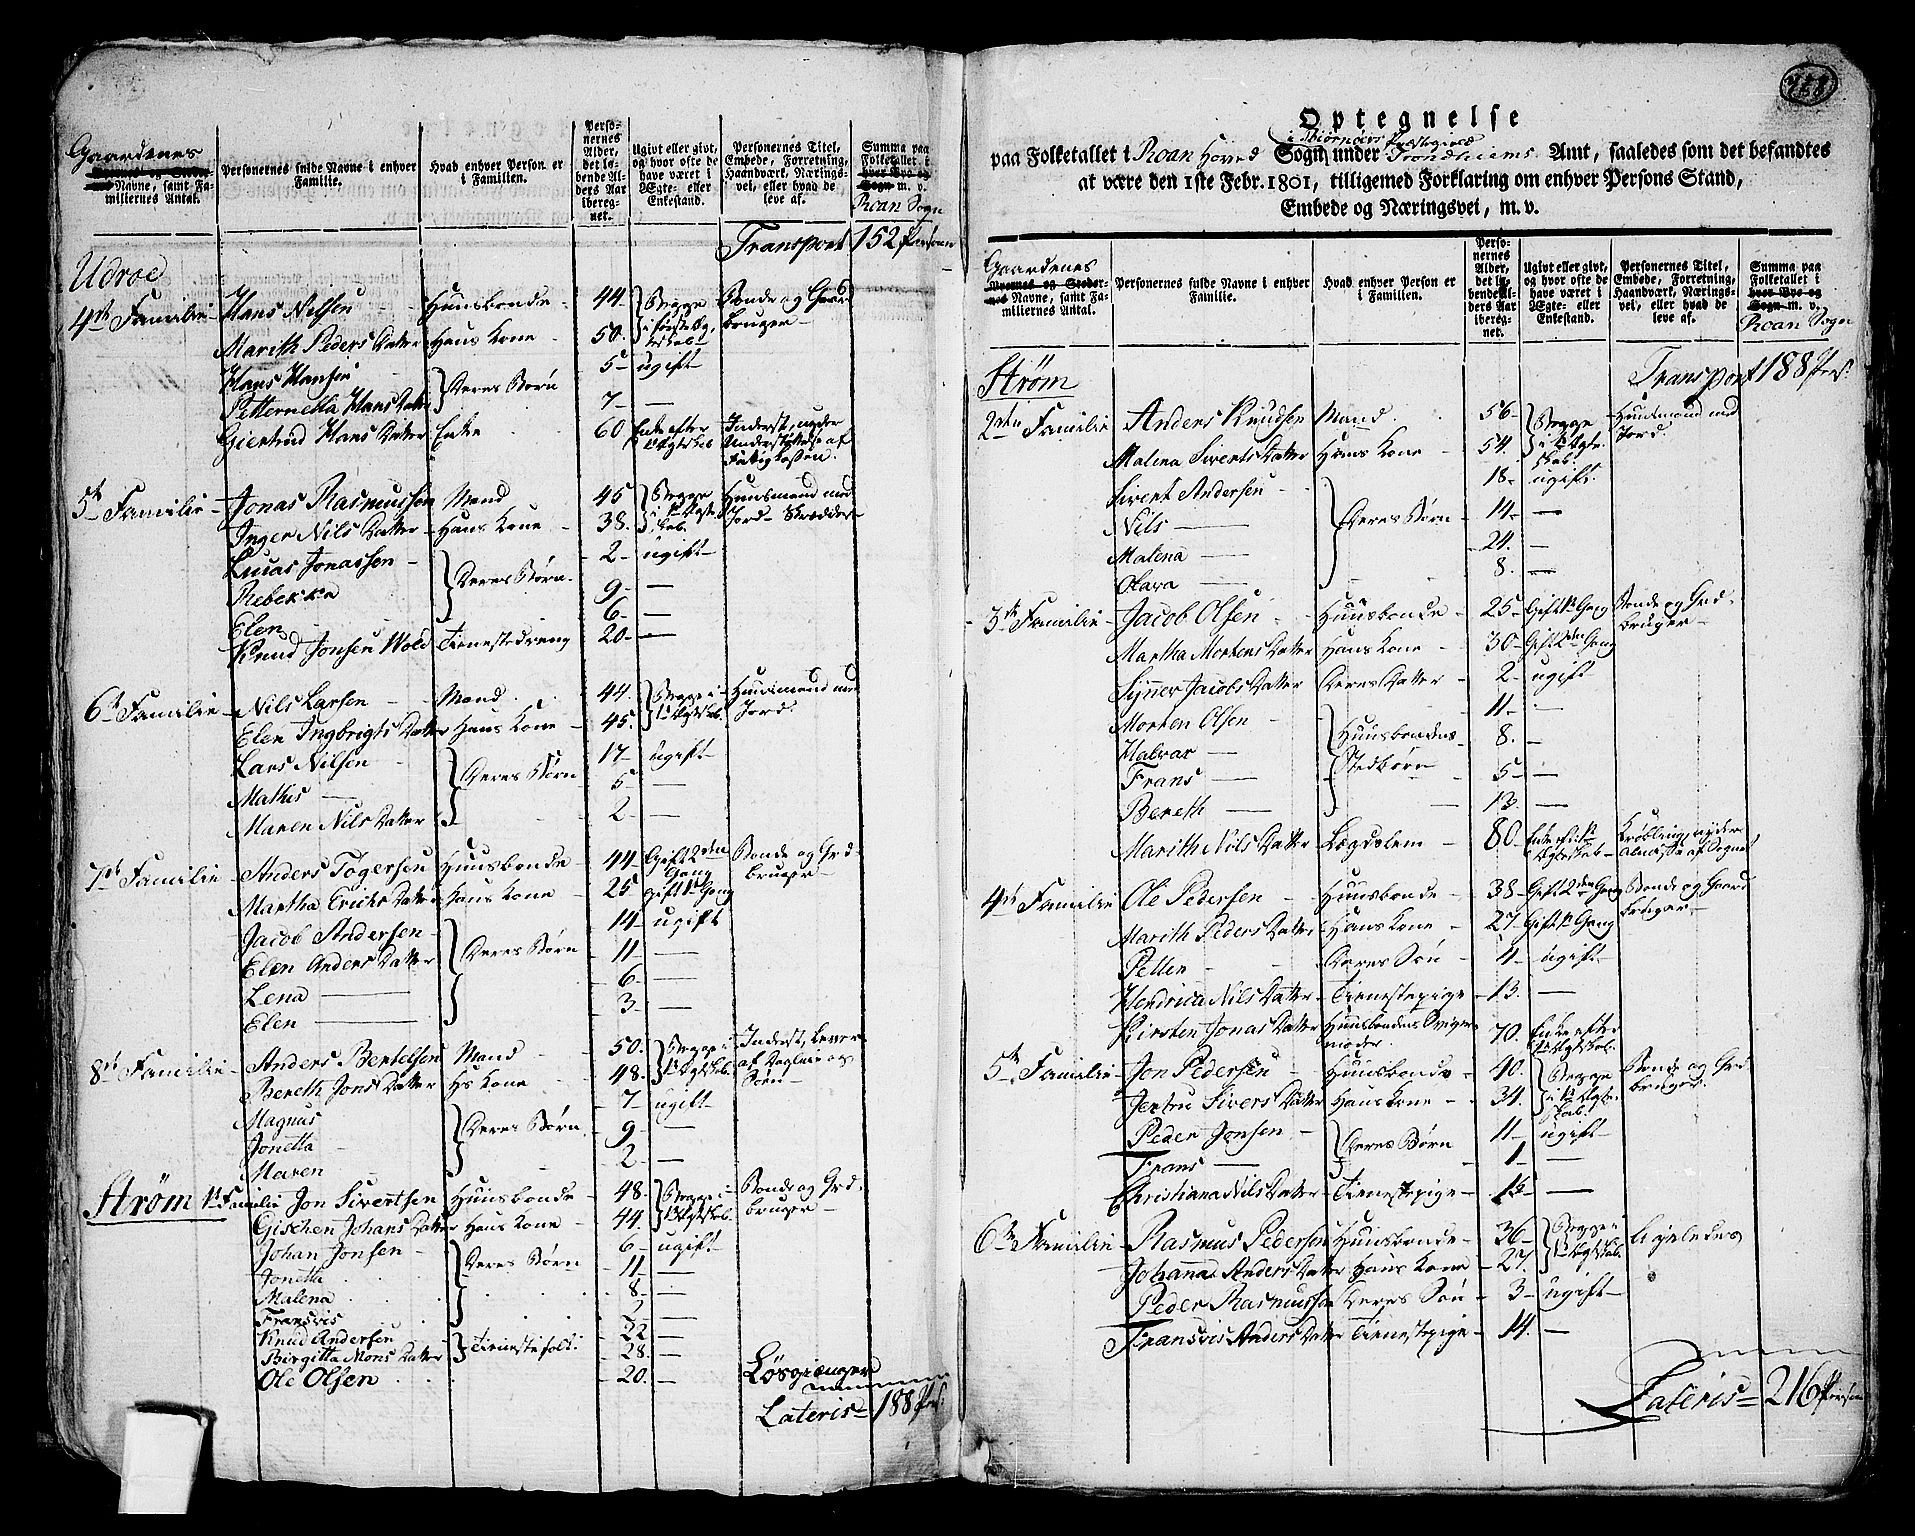 Gaardenes
Byernes og Steder-
nes Navne, samt Fa-
miliernes Antal.
Personernes fulde Navne i enhver
Familie.
Hvad enhver Person er
i Familien.
Perso-
nernes
Alder,
det lø-
bende Al-
ders Aar
iberreg-
net.
Ugivt eller givt,
og hvor ofte de
have været i
Ægte- eller
Enkestand.
Personernes Titel,
Embede, Forretning,
Haandværk, Nærings-
vei, eller hvad de
leve af.
Summa paa
Folketallet i
hver Bye og
Sogn m. v.
Roan Sogn
Transport 152 Personer
Udroe
4de Familie - Hans Nilsen Huusbonde - 44. Begge i første Ægteskab Bonde og Gaardbruger -
Marith Peders Datter Hans Kone - 50.
Hans Hansen Deres Børn 5 - ugift -
Petternella Hans Datter 7 - —
Giertrud Hans Datter Enke 60 Enke efter 1ste Ægteskab Inderst, nyder Understøttelse af Fattigkassen.
5te Familie - Jonas Rasmussen Mand 45 Begge i 1ste Ægteskab. Huusmand med Jord - Skrædder -
Inger Nils Datter - Hans Kone - 38.
Lucas Jonassen - Deres Børn. 2 - ugift -
Rebekka 9 - —
Elen 6 - —
Knud Jonsen Wold Tienestedreng 20 - —
6te Familie - Nils Larsen Mand 44. Begge i 1ste Ægteskab. Huusmand med Jord.
Elen Ingbrigts Datter Hans Kone - 45.
Lars Nilsen - Deres Børn 17 - ugift -
Mathis — 5 —
Maren Nils Datter 2 - —
7de Familie - Anders Togersen Huusbonde - 44 Gift 2den Gang Bonde og Grdbruger -
Martha Erichs Datter Hans Kone - 25 gift 1ste Gang
Jacob Andersen - Deres Børn 14 - ugift
Elen Anders Datter 11 - —
Lena — 6 - —
Elen — 3 - —
8de Familie - Anders Bertelsen Mand 50. Begge i 1ste Ægteskab. Inderst, Lever af Dagleie og Søen -
Bereth Jons Datter Hs Kone - 48.
Magnus Deres Børn. 7 - ugift
Jonetta - 9 - —
Maren 2 - —
Strøm 1ste Familie Jon Sivertsen Huusbonde - 48. Begge i 1ste Ægteskab. Bonde og Grdbruger -
Gischen Johans Datter Hans Kone - 44.
Johan Jonsen - Deres Børn 6 - ugift -
Jonetta 11 - —
Malena 8 - —
Fransvis 2 - —
Knud Andersen Tienestefolk. 22 —
Birgitta Mons Datter 28. —
Ole Olsen 20. — Løsgiænger
Lateris = 188 Pers.
758
Optegnelse
i Biørnøers Præstegield
paa Folketallet i Roan Hoved Sogn under Trondhiems Amt, saaledes som det befandtes
at være den 1ste Febr. 1801, tilligemed Forklaring om enhver Persons Stand,
Embede og Næringsvei, m. v.
Gaardenes
Byernes og Steder-
nes Navne, samt Fa-
miliernes Antal.
Personernes fulde Navne i enhver
Familie.
Hvad enhver Person er
i Familien.
Perso-
nernes
Alder,
det lø-
bende Al-
ders Aar
iberreg-
net.
Ugivt eller givt,
og hvor ofte de
have været i
Ægte- eller
Enkestand.
Personernes Titel,
Embede, Forretning,
Haandværk, Nærings-
vei, eller hvad de
leve af.
Summa paa
Folketallet i
hver Bye og
Sogn m. v.
Roan Sogn
Strøm Transport 188 Pers.
2den Familie Anders Knudsen Mand 56 - Begge i 1ste Ægteskab. Huusmand med Jord.
Malena Siverts Datter Hans Kone - 54.
Sivert Andersen - Deres Børn 18 - ugift.
Nils — 14 - —
Malena — 24. —
Olava — 8. —
3die Familie - Jacob Olsen Huusbonde - 25 - Gift 1ste Gang Bonde og Grdbruger -
Martha Mortens Datter Hans Kone - 30 - Gift 2den Gang
Synner Jacobs Datter Deres Datter 2 - ugift
Morten Olsen - Huusbondens Stedbørn 11 - —
Halvar — 8. —
Frans — 5 - —
Bereth — 13. —
Marith Nils Datter Lægdslem 80. Enke eft. 1ste Ægteskab - Krøbling, nyder almisse af Sognet
4de Familie Ole Pedersen - Huusbonde - 38 - Gift 2den Gang Bonde og Gaardbruger -
Marith Peders Datter Hans Kone - 27 - Gift 1ste Gang
Petter - Deres Søn - 4 - ugift -
Hendrica Nils Datter - Tienestepige - 13. —
Kirsten Jonas Datter Huusbondens Svigermoder. 70. Enke efter 1ste Ægteskab.
5te Familie - Jon Pedersen Huusbonde - 40. Begge i 1ste Ægteskab. Bonde og Grdbruger
Jertru Sivers Datter Hans Kone - 34.
Peder Jonsen - Deres Børn 11 - ugift -
Frans — 1 - —
Christiana Nils Datter Tienestepige - 15 - —
6te Familie - Rasmus Pedersen Huusbonde - 36 - Begge i 1ste Ægteskab. ligeledes
Johanna Anders Datter Hans Kone - 27.
Peder Rasmussen Deres Søn - 3 - ugift -
Fransvis Anders Datter Tienestepige - 14. —
Lateris = 216 Personer